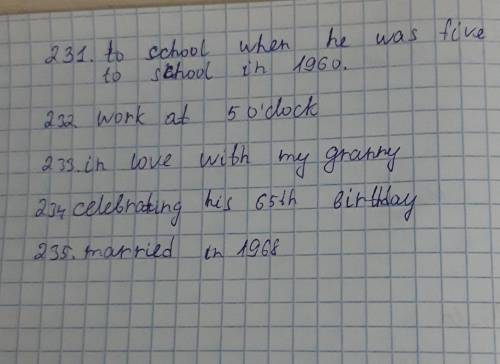 231. to school when he was five
to school in 1960.
232. work at 5 o'clock
233. in love with my granny
234. celebrating his 65th birthday
235. married in 1968